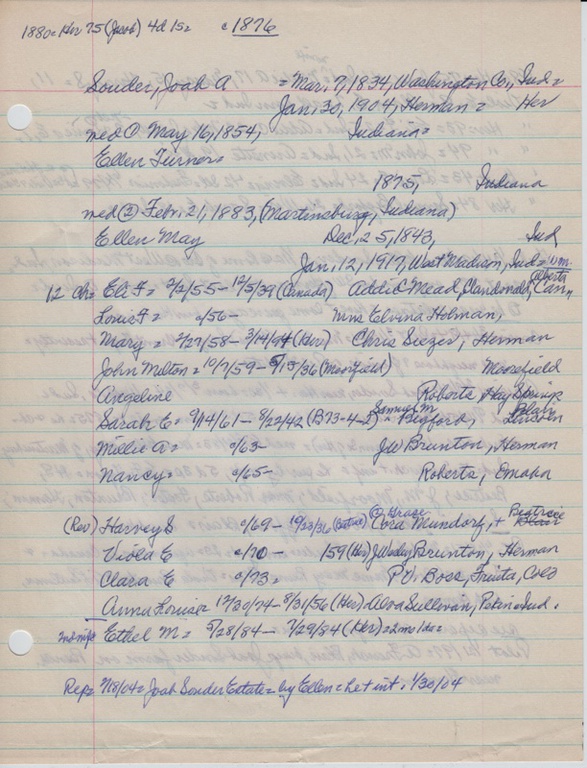 1880= Her 75 (Jacob) 4d 1s= c 1876
Souder, Joah A = Mar. 7, 1834, Washington Co., Ind=
Jan. 30, 1904, Herman = Her
med ① May 16, 1854, Indiana=
Ellen Turner=
1875, Indiana
med ② Feb. 21, 1883, (Martinsburg, Indiana)
Ellen May Dec. 25, 1843, Ind
Jan. 12, 1917, West Madison, Ind=
12 Ch= Eli F= 2/2/55 - 12/5/39 (Canada) Addie Mead, Clandonald, Alberta, Can
Louis F= c/56 - Mrs Elvina Holman,
Mary= 2/27/58 - 3/14/94 (Her) Chris Seeger, Herman
John Milton= 10/7/59 - 5/15/36 (Moorefield) Moorefield
Angeline Roberts, Hay Springs
Sarah E= 9/14/61 - 8/22/42 (B73-4-2) Samuel M. Bufford, Blair
Millie A= c/63- J W Brunton, Herman
Nancy= c/65- Roberts, Omaha
(Rev) Harvey S c/69 - 10/23/36 (Beatrice) ② Grace Cora Mundorf, + Beatrice
Viola E c/70 - /59 (Her) J Wesley Brunton, Herman
Clara E c/73= P. O. Boss, Fruita, Colo
Anna Louise= 12/30/74 - 8/31/56 (Her) Alva Sullivan, Pekin Ind.
2nd wife Ethel M= 5/28/84 - 7/29/84 (Her)= 2mo 1da=
Rep= 2/18/04= Joah Souder Estate= by Ellen= Let int. 1/30/04